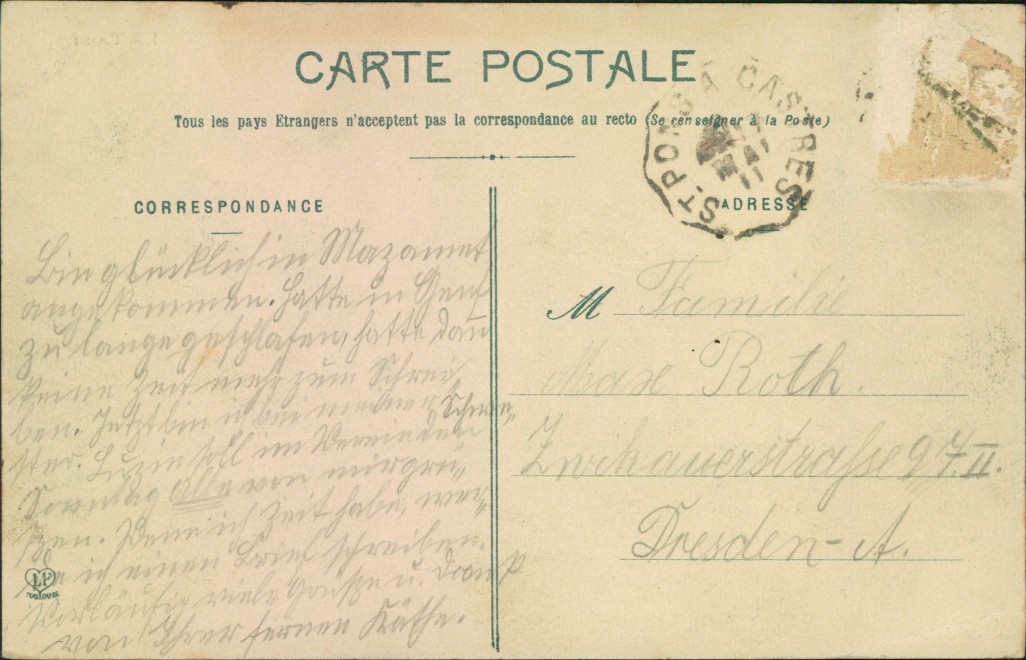 CARTE POSTALE
Tous les pays Etrangers n'acceptent pas la correspondance au recto (Se renseigner à la Poste)
ST PONS A CASTRES
MAI
11
CORRESPONDANCE
ADRESSE
Bin glücklich in Mazamet
angekommen. Hatte in Genf
zu lange geschlafen, hatte dan̄
keine Zeit mehr zum Schrei„
ben. Jetzt bin ich bei meiner Schwe„
ster. soll im Verein den
Sonntag alle von mir grü„
ßen. Wenn ich Zeit habe, wer„
de ich einen Brief schreiben.
Vorläufig viele Grüße u. Dank
von Ihrer fernen Käthe.
LF
M Familie
Max Roth.
Zwikauerstraße 97.II.
Dresden-A.